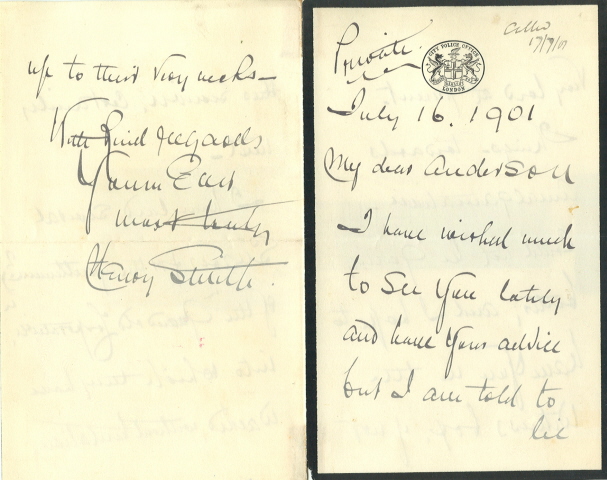 Private
CITY POLICE OFFICE
LONDON
17/7/01
July 16. 1901
My dear Anderson
I have wished much
to see you lately
and have your advice
but I am told to
lie
up to their very necks—
With kind regards
Yours Ever
most truly
Henry Smith